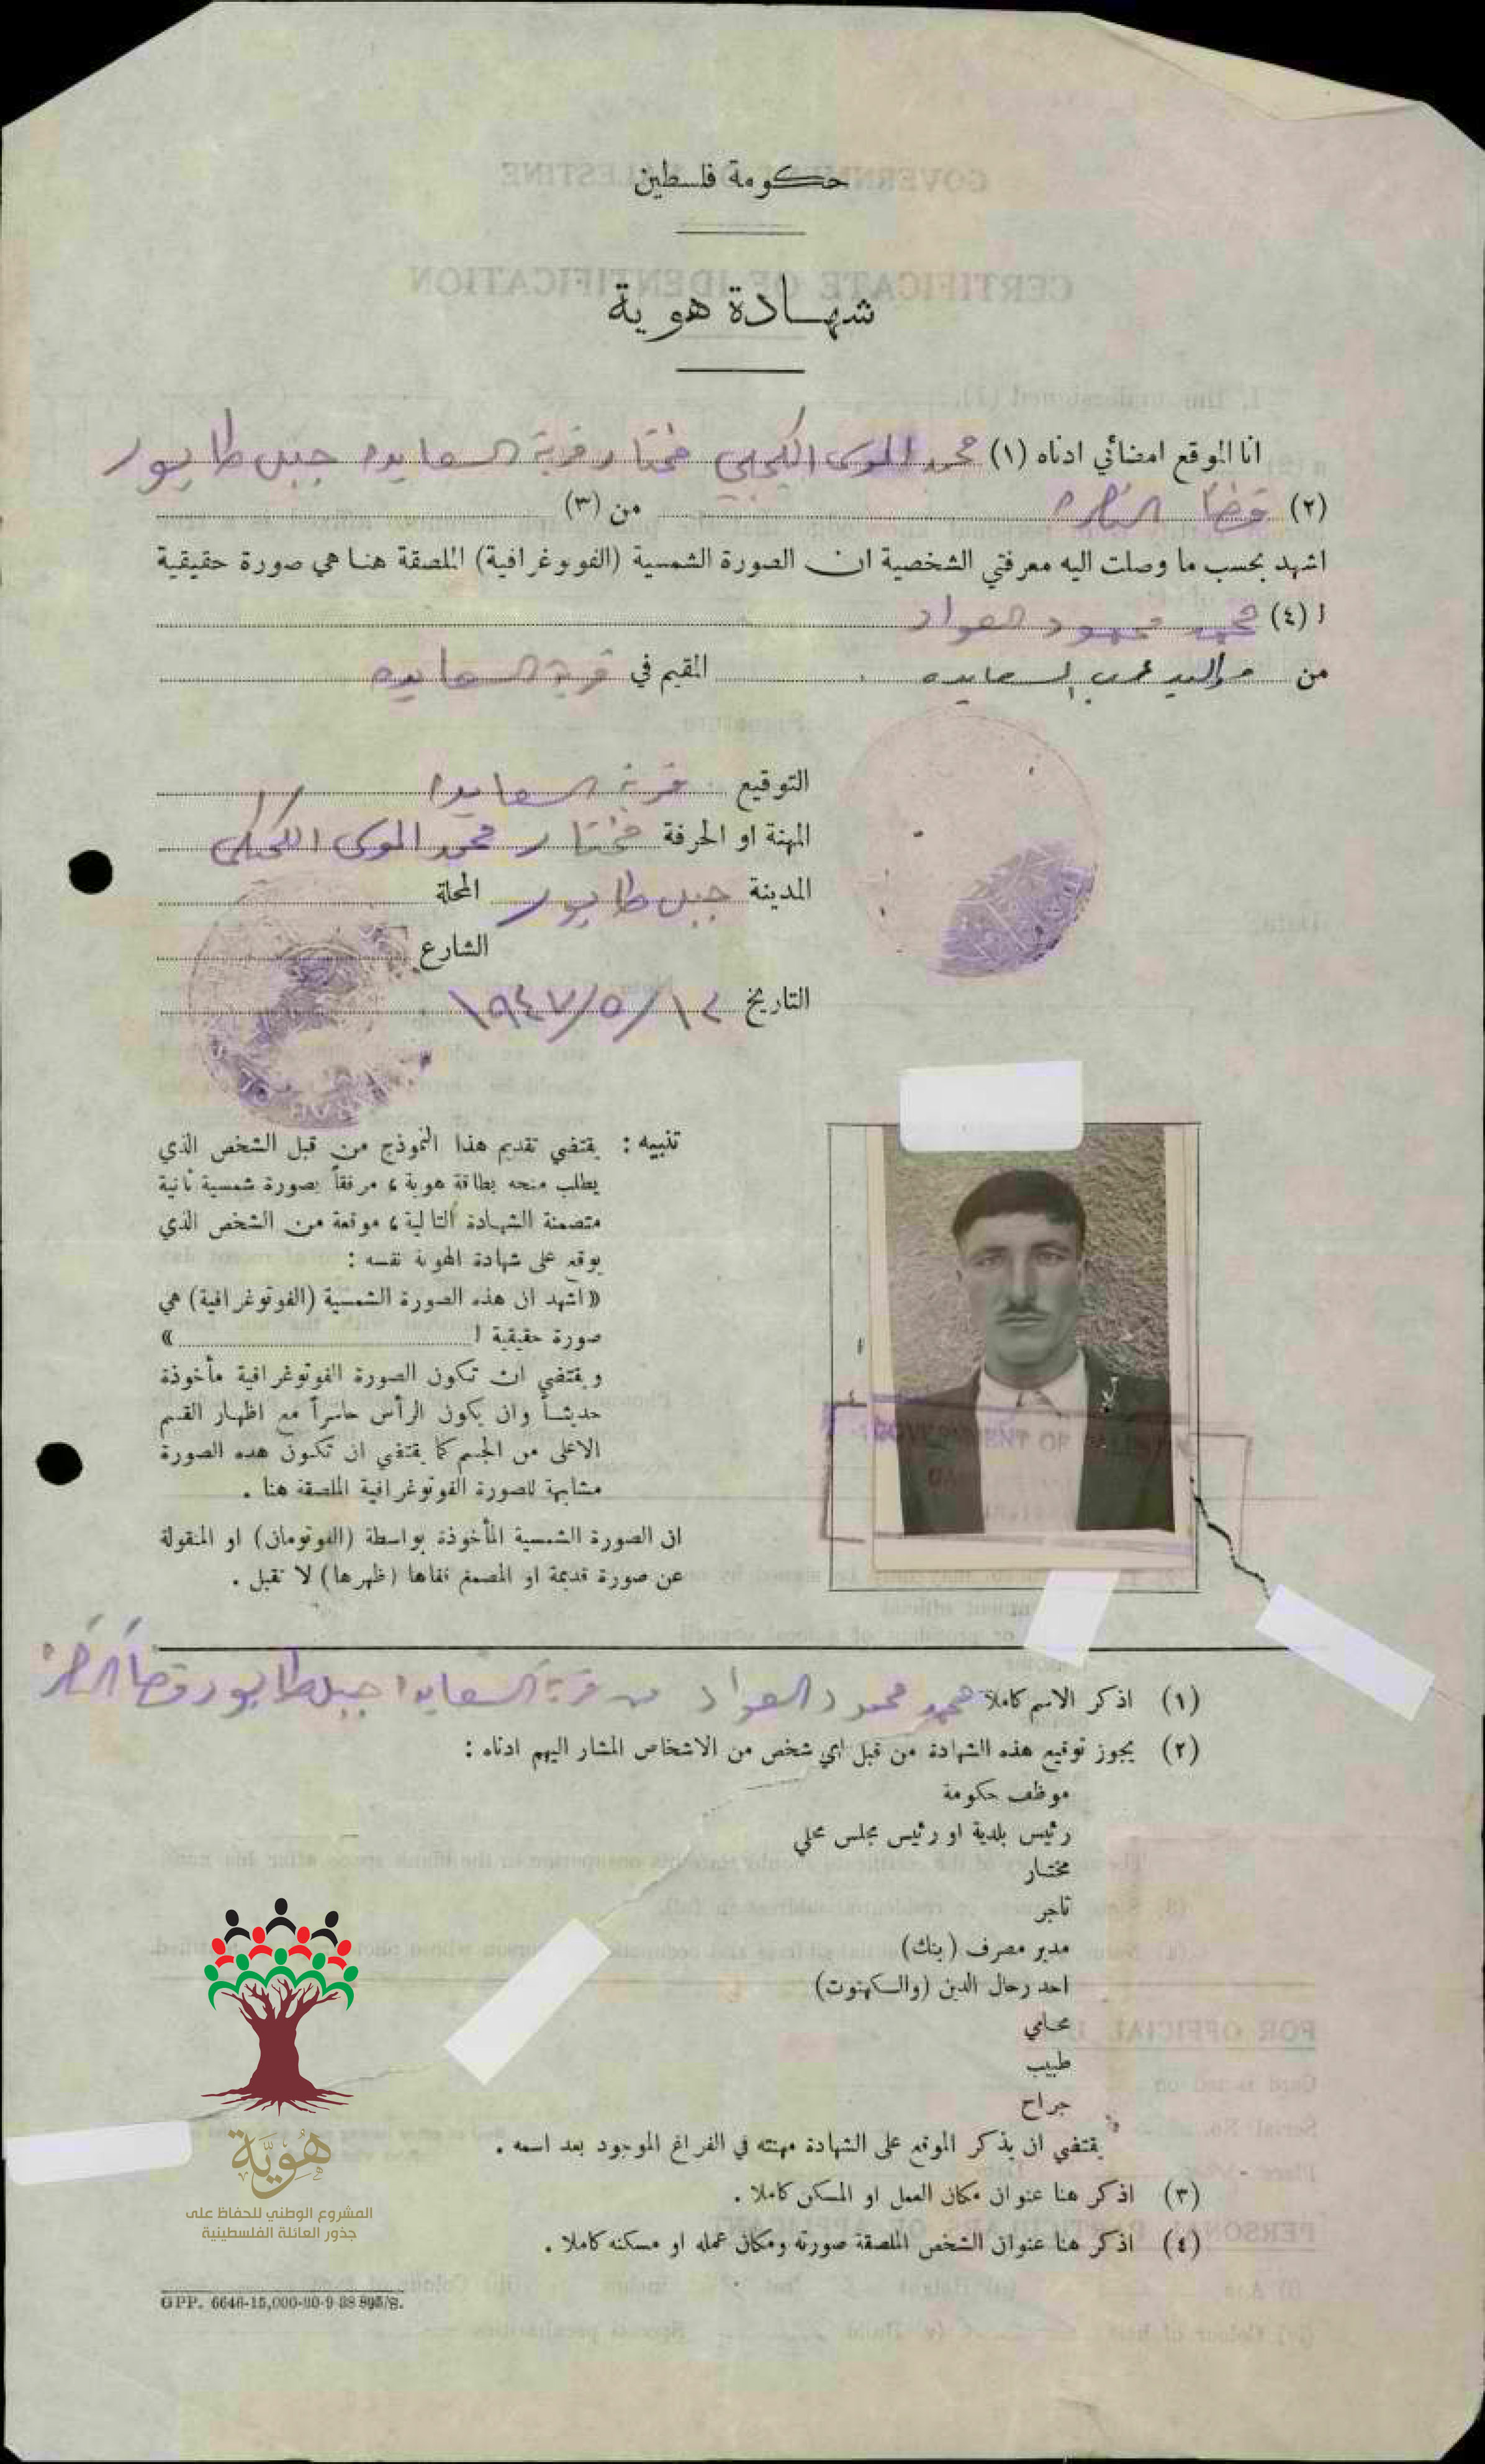 حكومة فلسطين
شهادة هوية
انا الموقع امضائي ادناه (١) محمد الموسى مختار قرية السعايده جبل طابور
(٢) قضا الناصره من (٣)
اشهد بحسب ما وصلت اليه معرفتي الشخصية ان الصورة الشمسية (الفوتوغرافية) الملصقة هنا هي صورة حقيقية
ا (٤) محمد محمود العواد
من مواليد عرب السعايده المقيم في قرية السعايده
التوقيع قرية السعايدا
المهنة او الحرفة مختار محمد الموسى
المدينة جبل طابور المحلة
الشارع
التاريخ ١٢/٥/١٩٤٧
تنبيه : يقتضي تقديم هذا النموذج من قبل الشخص الذي
يطلب منحه بطاقة هوية ، مرفقاً بصورة شمسية ثانية
متضمنة الشهادة التالية ، موقعة من الشخص الذي
يوقع على شهادة الهوية نفسه :
«اشهد ان هذه الصورة الشمسية (الفوتوغرافية) هي
صورة حقيقية ا »
ويقتضي ان تكون الصورة الفوتوغرافية مأخوذة
حديثاً وان يكون الرأس حاسراً مع اظهار القسم
الاعلى من الجسم كما يقتضي ان تكون هذه الصورة
مشابهة للصورة الفوتوغرافية الملصقة هنا .
ان الصورة الشمسية المأخوذة بواسطة (الفوتومان) او المنقولة
عن صورة قديمة او المصمغ قفاها (ظهرها) لا تقبل .
GOVERNMENT OF
(١) اذكر الاسم كاملا محمد محمود العواد من قرية السعايدا جبل طابور قضا الناصره
(٢) يجوز توقيع هذه الشهادة من قبل اي شخص من الاشخاص المشار اليهم ادناه :
موظف حكومة
رئيس بلدية او رئيس مجلس محلي
مختار
تاجر
مدير مصرف (بنك)
احد رجال الدين (والكهنوت)
محامي
طبيب
جراح
يقتضي ان يذكر الموقع على الشهادة مهنته في الفراغ الموجود بعد اسمه .
(٣) اذكر هنا عنوان مكان العمل او المسكن كاملا .
(٤) اذكر هنا عنوان الشخص الملصقة صورته ومكان عمله او مسكنه كاملا .
هُوِيَّة
المشروع الوطني للحفاظ على
جذور العائلة الفلسطينية
GPP. 6646-15,000-30-9-38 895/S.